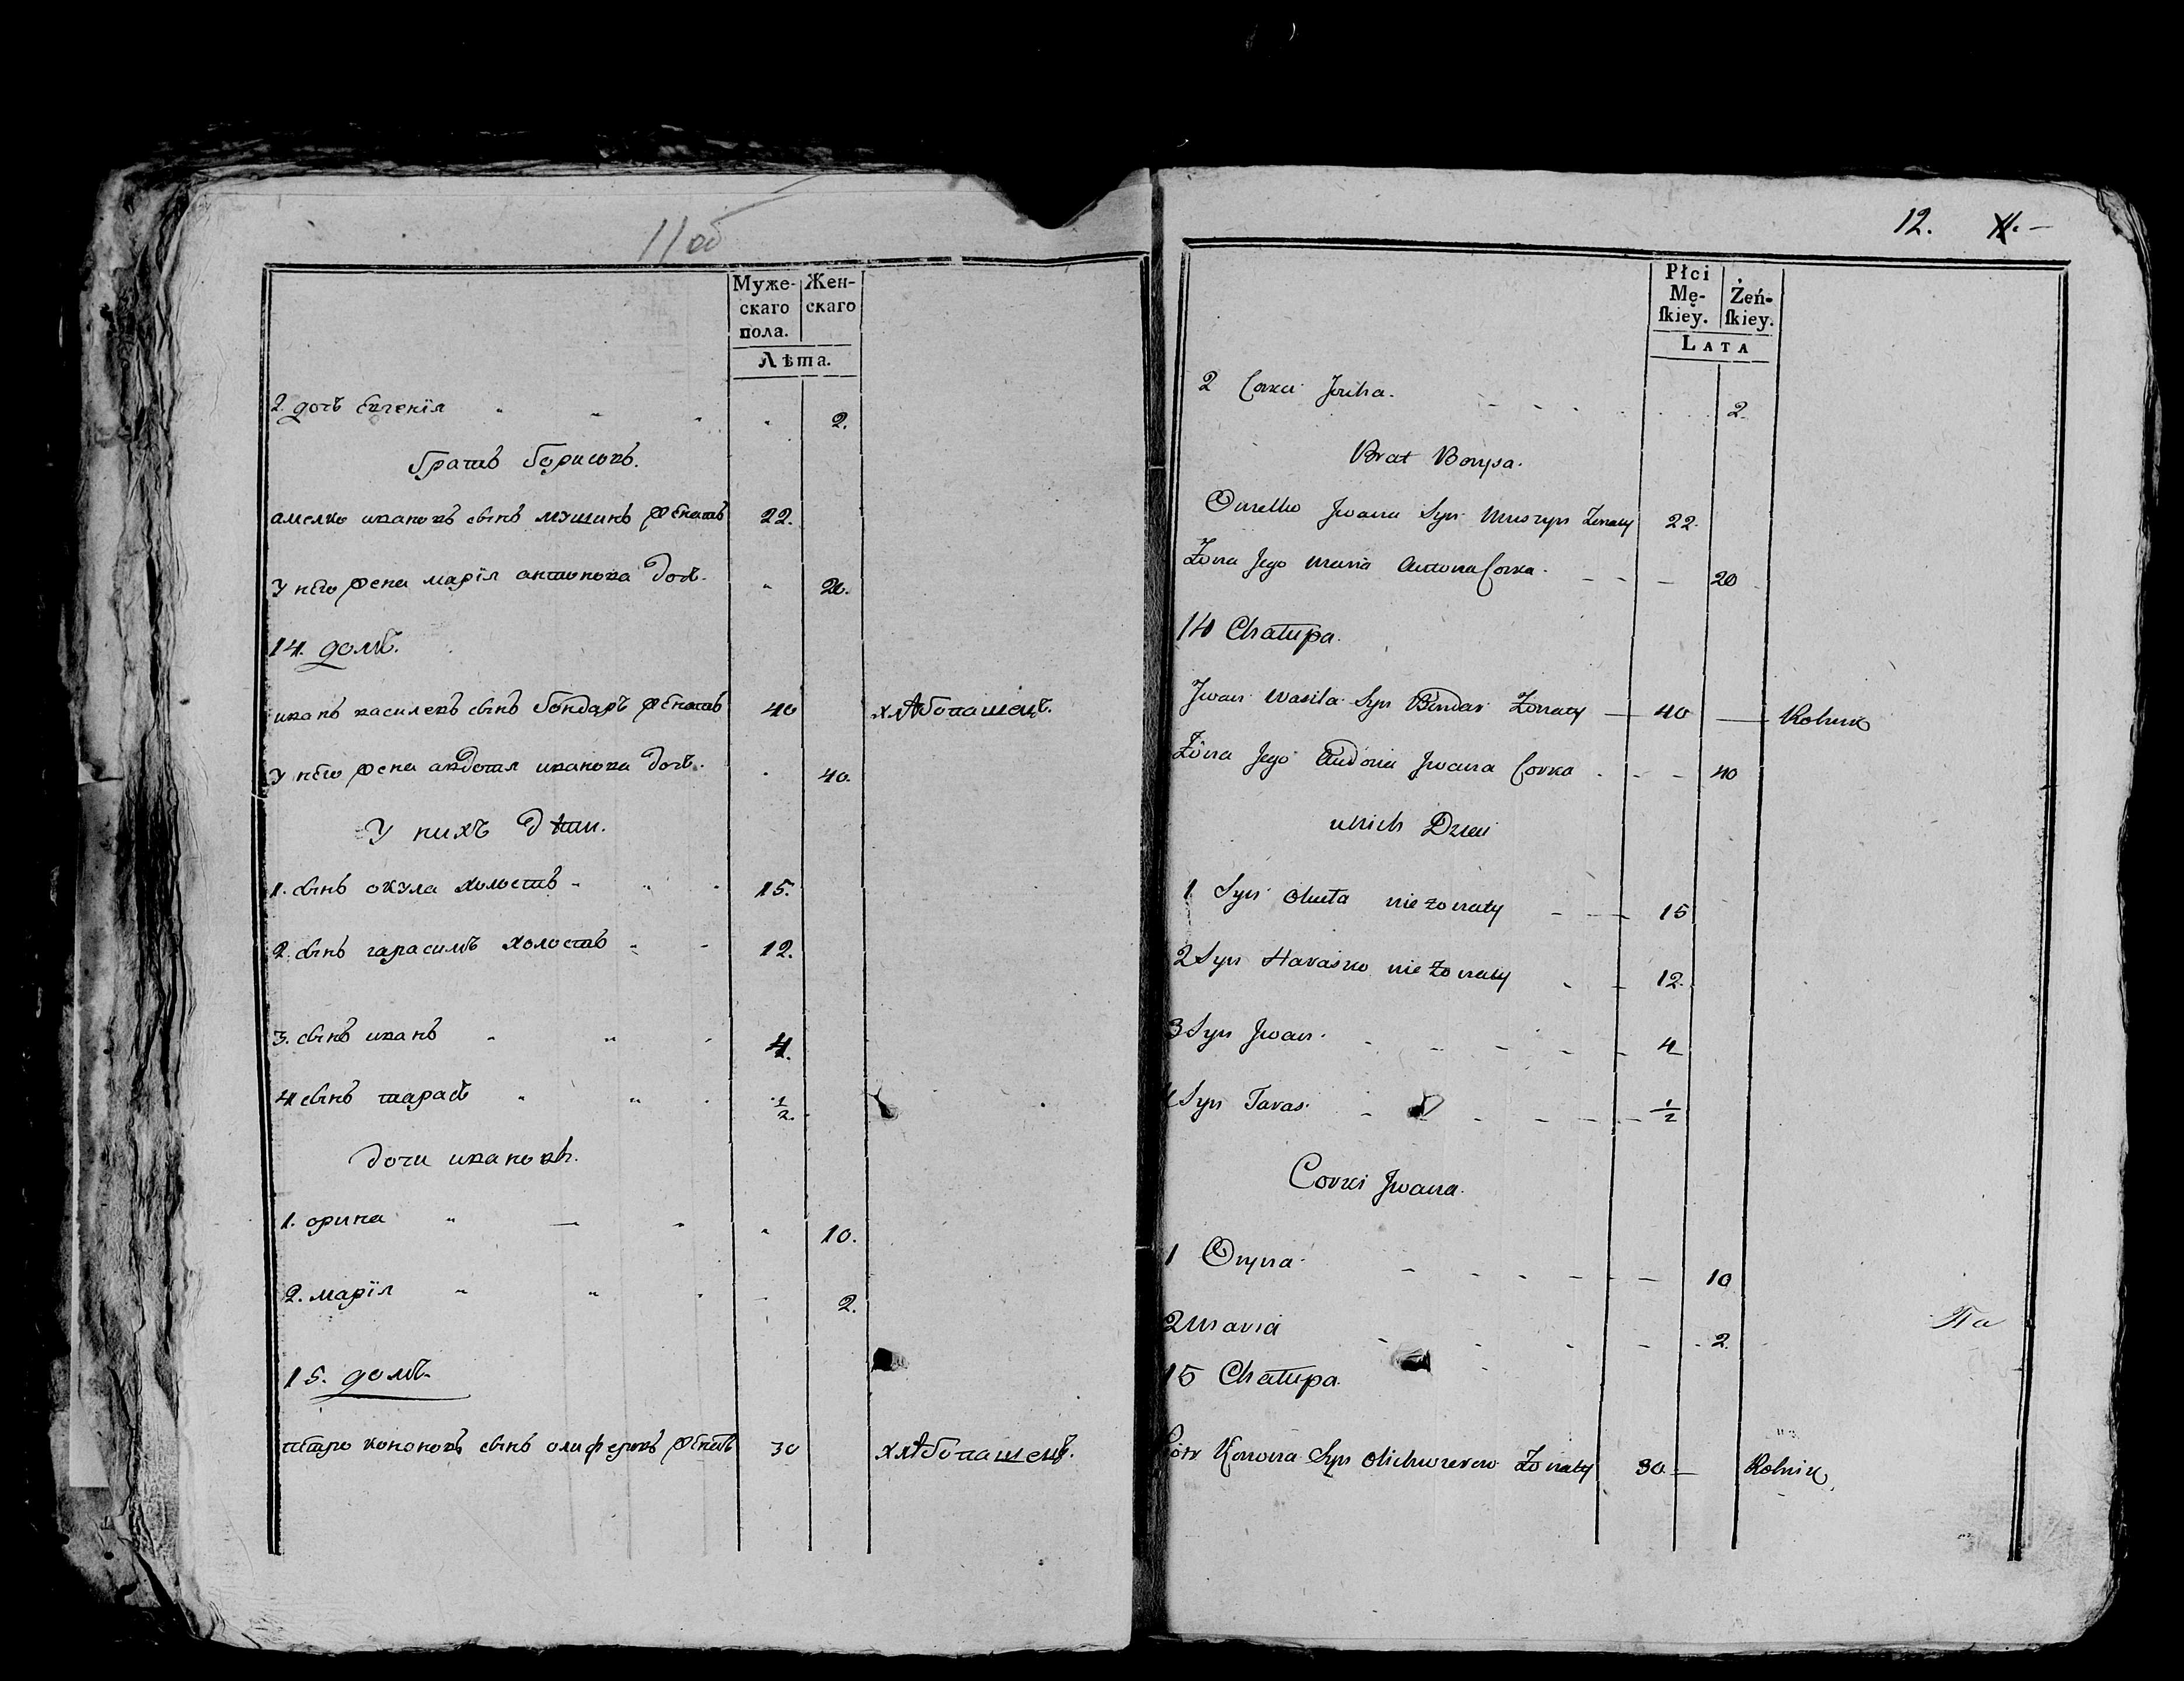 11 об
Муже-
скаго
пола.
Жен-
скаго
Лѣта.
2. дочь Евгенїя 2.
братъ борисовъ.
амелко ивановъ сынъ мушинъ женатъ 22.
у него жена марїя антонова дочь. 20.
14. домъ.
иванъ василевъ сынъ бондарь женатъ 40 хлѣбопашецъ.
у него жена авдотия иванова дочь. 40.
У нихъ дѣти.
1. сынъ окула холостъ 15.
2. сынъ гарасимъ холостъ 12.
3. сынъ иванъ 4.
4 сынъ тарасъ 1/2.
дочи ивановы.
1. орина 10.
2. марїя 2.
15. домъ.
петро кононовъ сынъ олиферовъ женатъ 30 хлѣбопашецъ.
12. 11.
Płci
Mę-
ſkiey.
Żeń-
ſkiey.
LATA
2 Corka 2.
Brat Borysa.
Omelko Jwana Syn Muszyn Żonaty 22.
Żona Jego Maria Antona Corka. 20
14 Chałupa.
Jwan Wasila Syn Bondar Żonaty 40 Rolnik
Żona Jego Audotia Jwana Corka 40
u Nich Dzieci
1 Syn Okuła nie żonaty 15
2 Syn Harasko nie żonaty 12.
3 Syn Jwan. 4
4 Syn Taras. 1/2
Corki Jwana.
1 Oryna. 10
2 Maria 2.
Па
15 Chałupa.
Piotr Konona Syn Żonaty 30. Rolnik